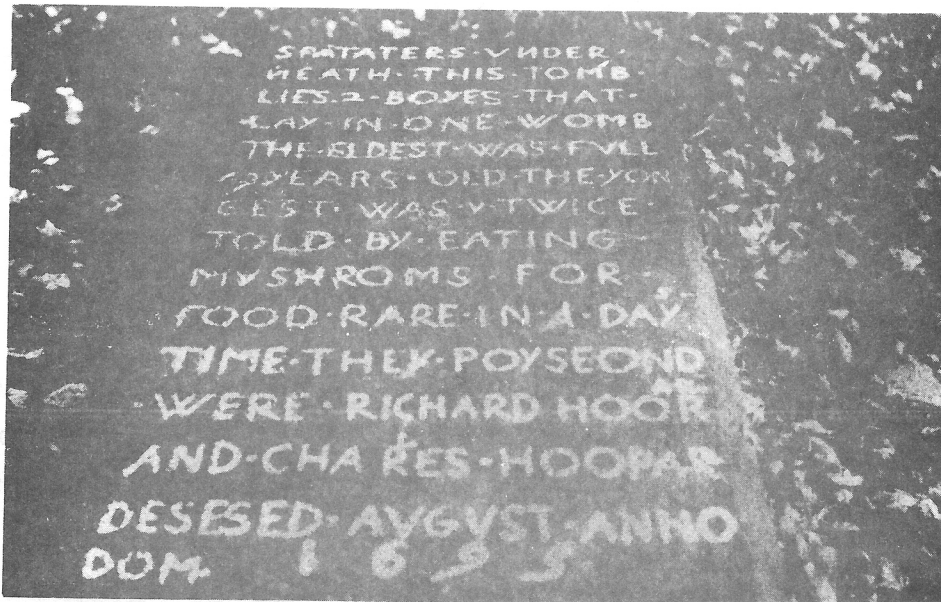 SPATATERS · VNDER ·
NEATH · THIS · TOMB ·
LIES · 2 · BOYES · THAT ·
LAY · IN · ONE · WOMB
THE · ELDEST · WAS · FVLL
YEARS · OLD · THE · YON
GEST · WAS · V · TWICE ·
TOLD · BY · EATING
MVSHROMS · FOR ·
FOOD · RARE · IN · A · DAY
TIME · THEY · POYSEOND
WERE · RICHARD HOOR
AND · CHARES · HOOPAR
DESESED · AVGVST · ANNO
DOM 1695